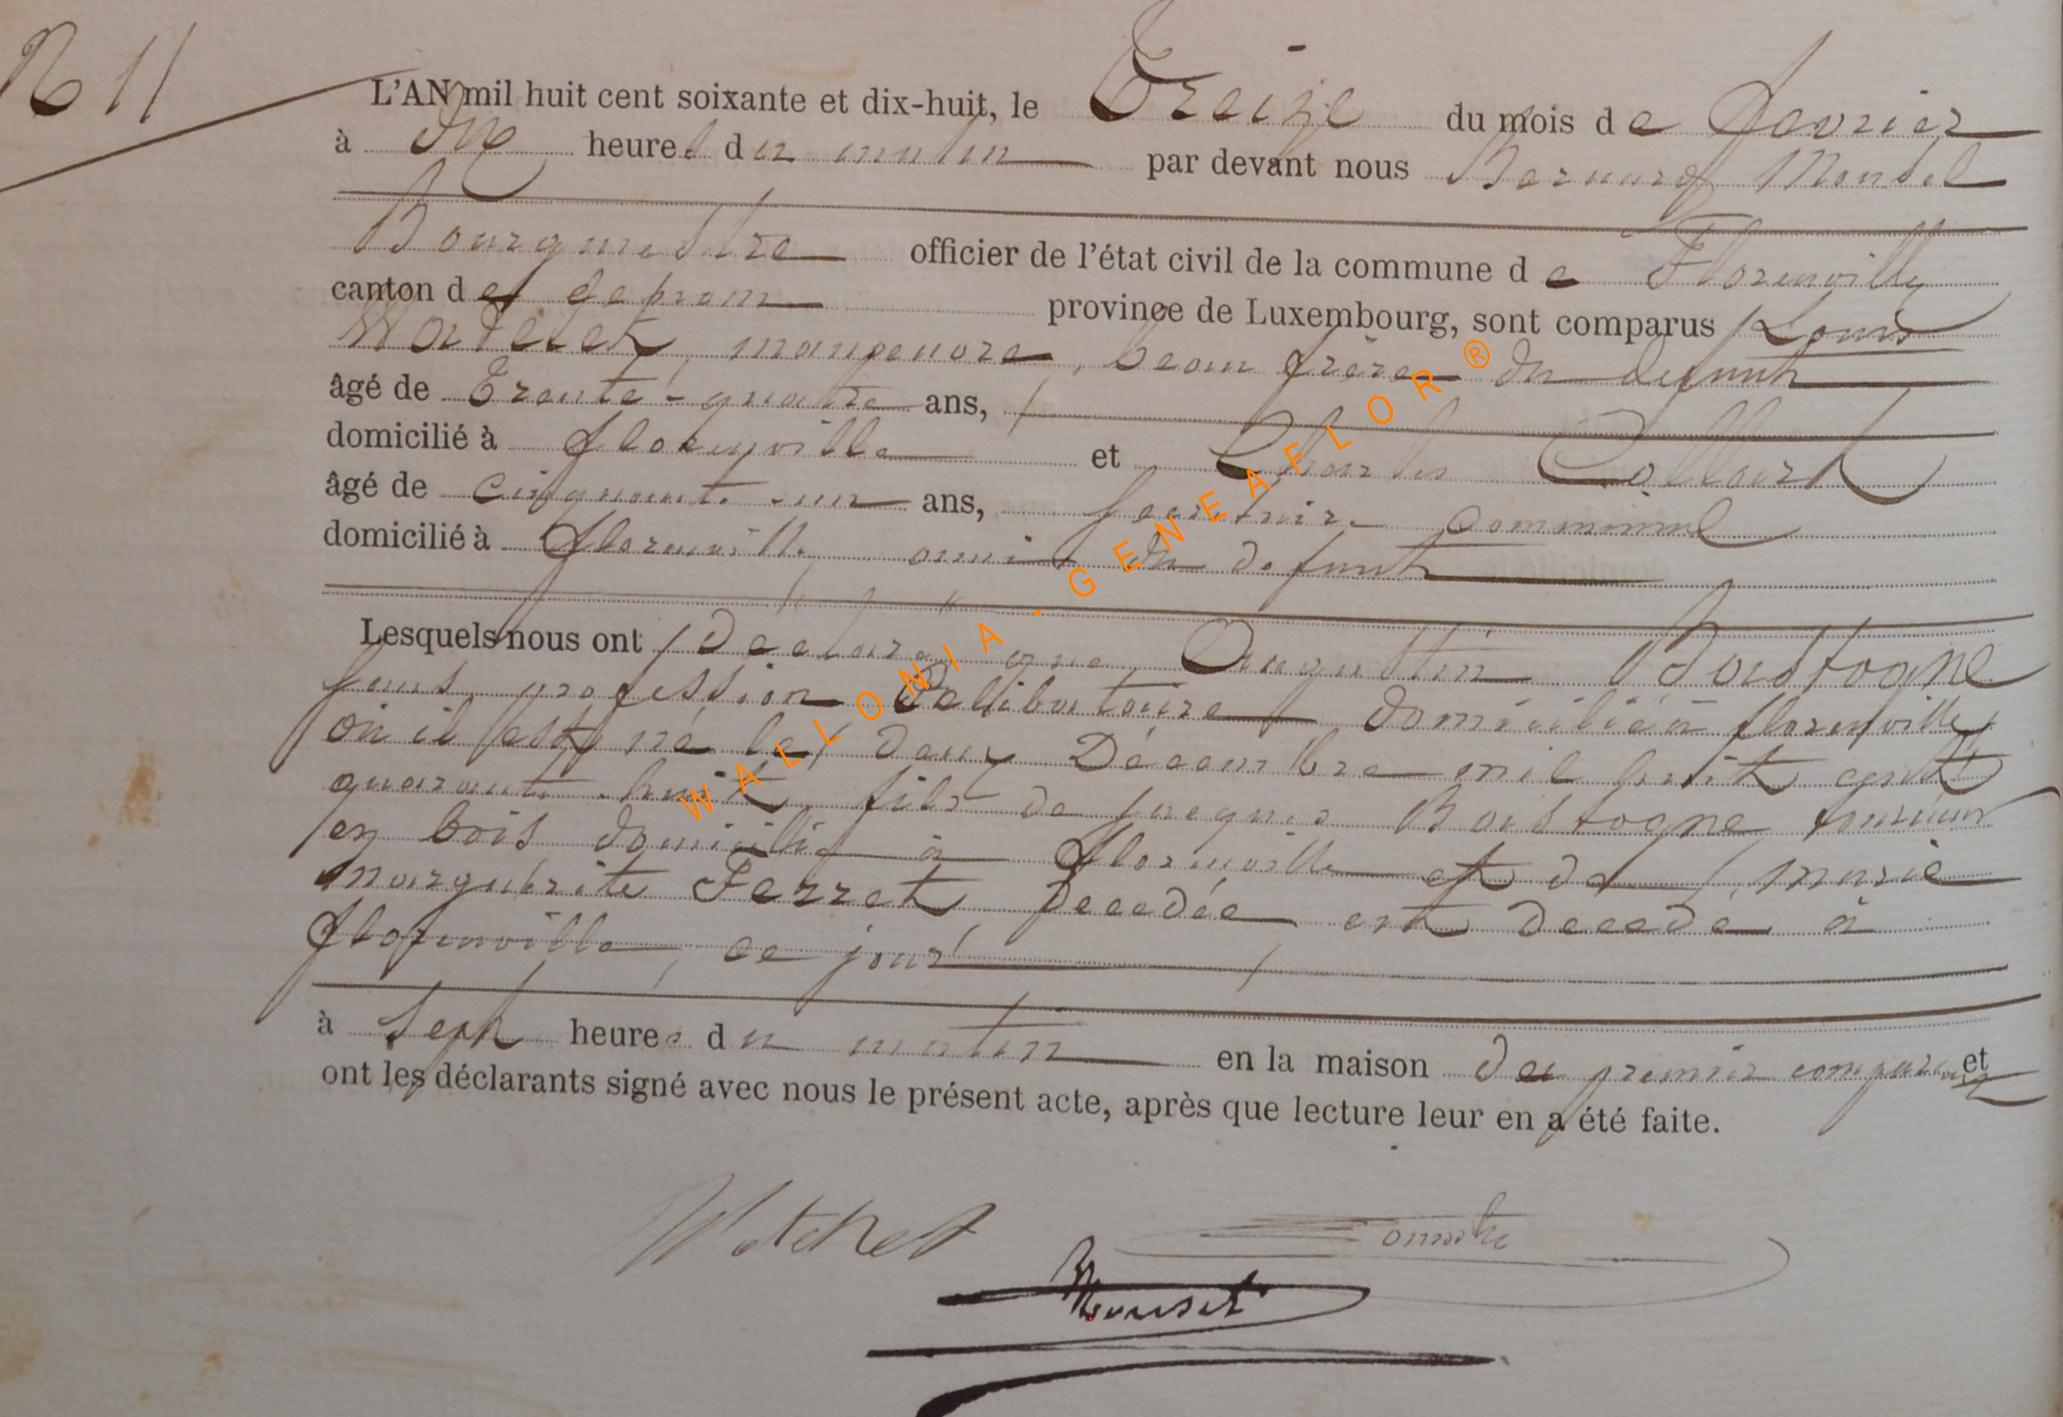 N° 11
L'AN mil huit cent soixante et dix-huit, le Treize du mois de Fevrier
à dix heures du matin par devant nous Bernard Monsel
Bourgmestre officier de l'état civil de la commune de Florenville
canton de province de Luxembourg, sont comparus Louis
manoeuvre, beau frère du defunt
âgé de Trente-quatre ans,
domicilié à florenville et Charles Collard
âgé de cinquante-un ans, secretaire communal
domicilié à florenville ami du defunt
Lesquels nous ont Déclaré que Augustin Bastogne
sans profession Célibataire domicilié à florenville
où il est né le deux Décembre mil huit cent
quarante-huit, fils de Jacques Bastogne
en bois domicilié à florenville et de Marie
marguerite Ferret Decedée est decedé à
florenville, ce jour
à Sept heures du matin en la maison du premier comparant et
ont les déclarants signé avec nous le présent acte, après que lecture leur en a été faite.
WALLONIA-GENEAFLOR®